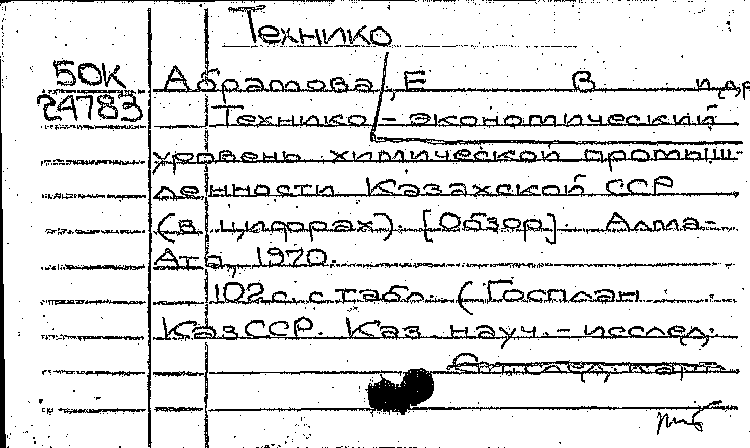 Технико
50К Абрамова, Е В и др
24783 Технико-экономический
уровень химической промыш-
ленности Казахской ССР
(в цифрах). [Обзор]. Алма-
Ата, 1970.
102 с. с табл. (Госплан
КазССР. Каз науч.-исслед.
См. след. карт